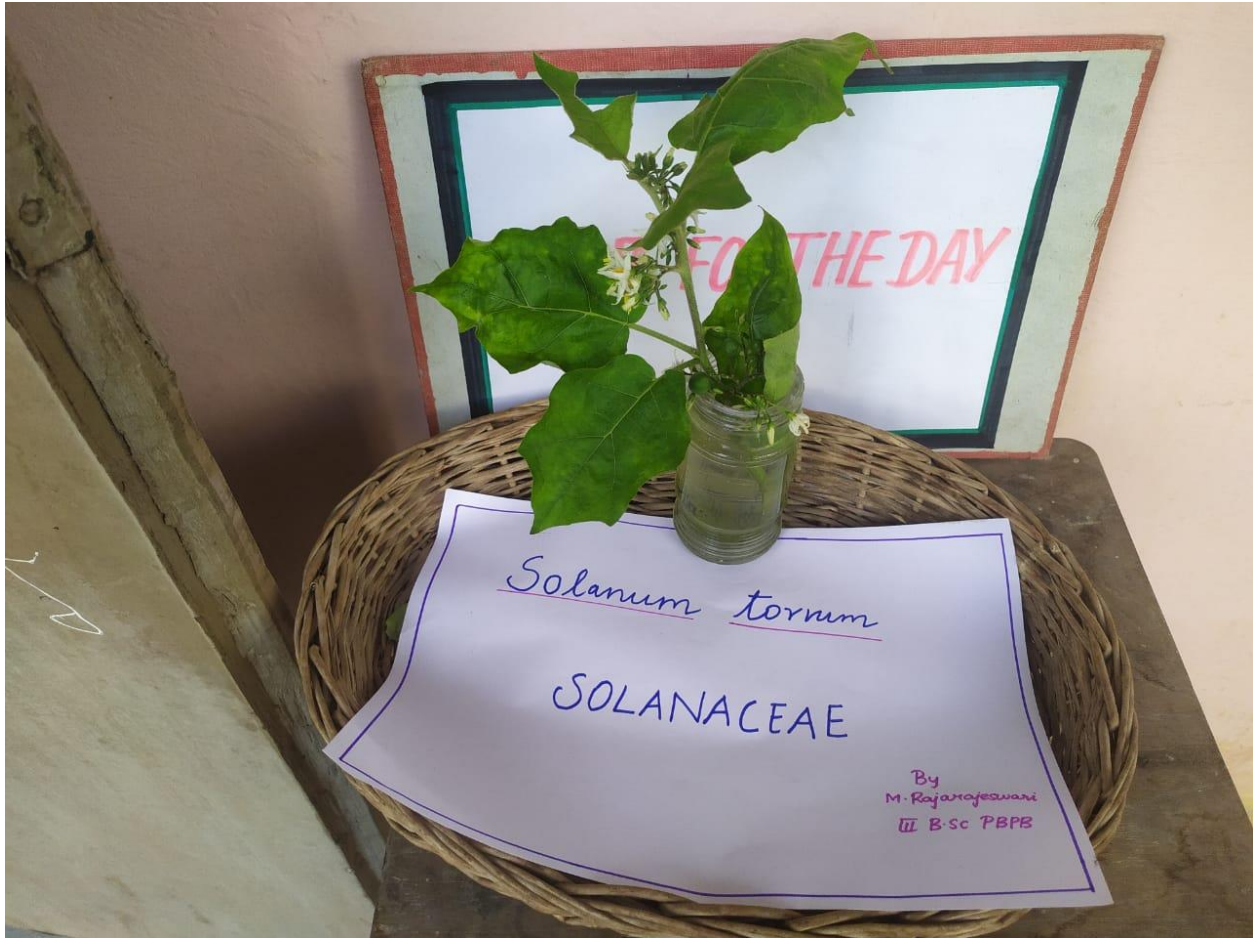 FOR THE DAY
Solanum torvum
SOLANACEAE
By
M. Rajarajeswari
III B.Sc PBPB